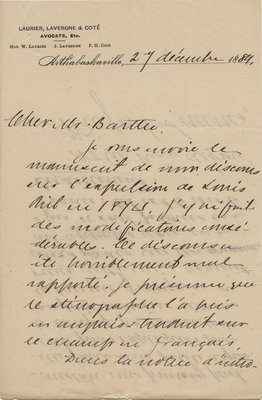 LAURIER, LAVERGNE & COTÉ
AVOCATS, Etc.
Hon. W. Laurier J. Lavergne F. H. Coté
Arthabaskaville, 27 décembre 1889.
Cher Mr. Barthe
Je vous envoie le
manuscrit de mon discours
sur l'expulsion de Louis
Riel en 1874. J'y ai fait
des modifications consi-
dérables. Ce discours a
été horriblement mal
rapporté. Je présume que
le sténographe l'a pris
en anglais & traduit sur
le champ en français.
Dans la notice d'intro-